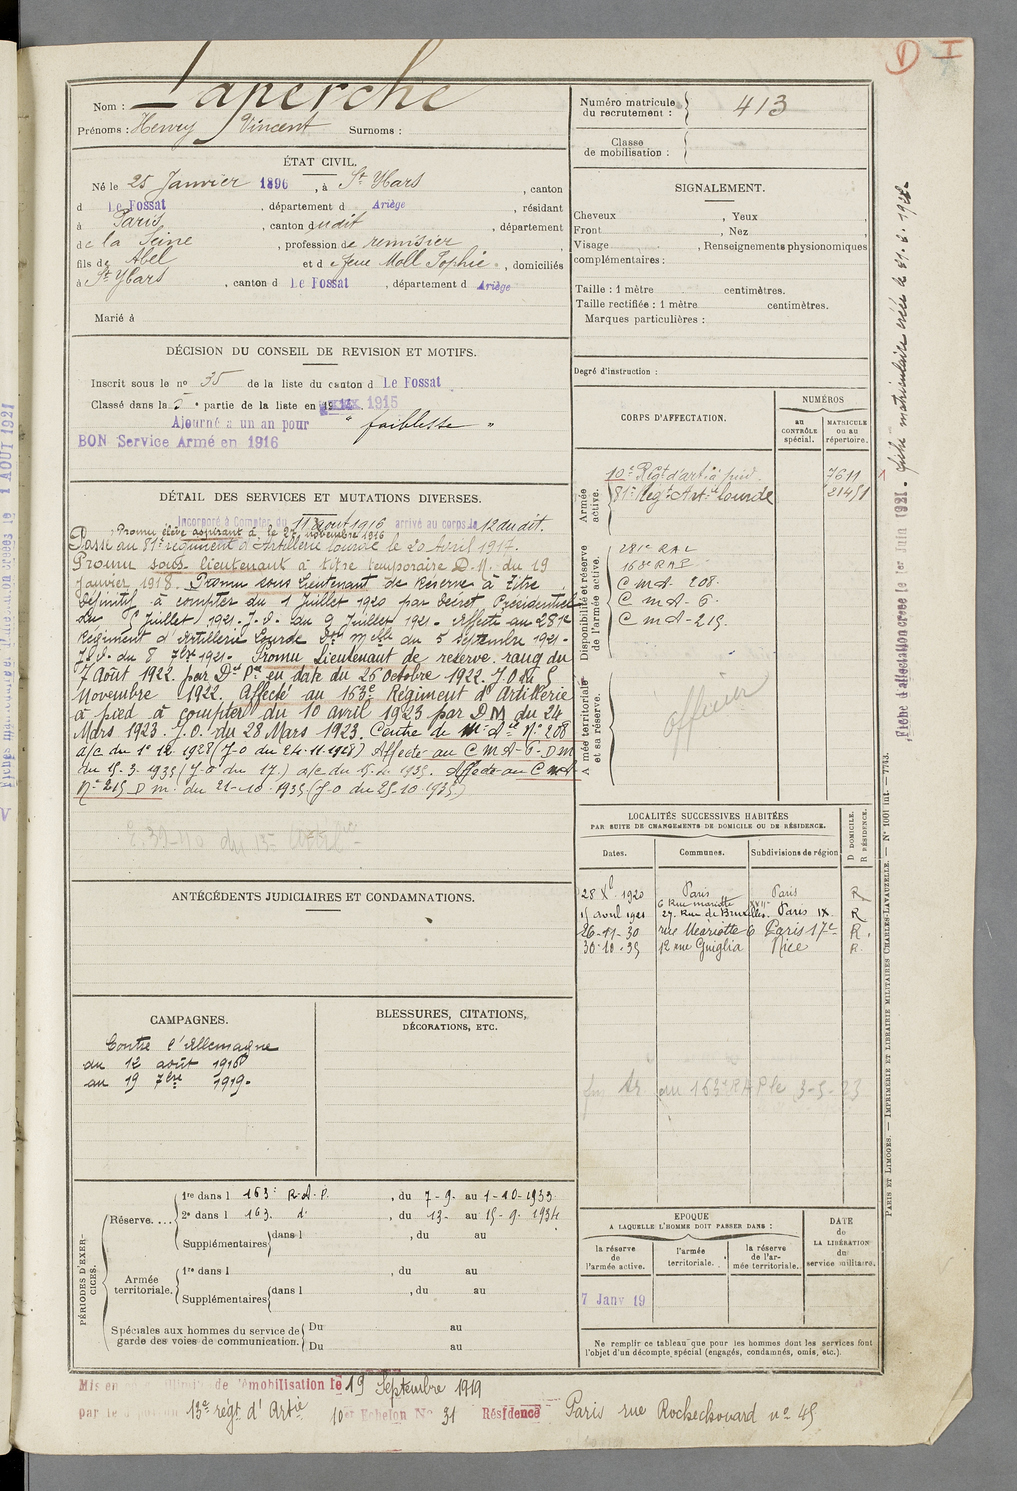 D I
Nom : Laperche
Prénoms : Henry Vincent Surnoms :
Numéro matricule du recrutement : 413
Classe de mobilisation :
ÉTAT CIVIL.
Né le 25 Janvier 1896, à St Ybars, canton
d Le Fossat, département d Ariège, résidant
à Paris, canton dudit, département
de la Seine, profession de remisier,
fils de Abel et d Moll Sophie, domiciliés
à St Ybars, canton d Le Fossat, département d Ariège
Marié à
SIGNALEMENT.
Cheveux , Yeux ,
Front , Nez ,
Visage , Renseignements physionomiques
complémentaires :
Taille : 1 mètre centimètres.
Taille rectifiée : 1 mètre centimètres.
Marques particulières :
Degré d'instruction :
DÉCISION DU CONSEIL DE REVISION ET MOTIFS.
Inscrit sous le no 35 de la liste du canton d Le Fossat
Classé dans la 5 e partie de la liste en 1915
Ajourné a un an pour " faiblesse "
BON Service Armé en 1916
DÉTAIL DES SERVICES ET MUTATIONS DIVERSES.
Incorporé à Compter du 11 août 1916 arrivé au corps le 12 dudit.
Promu élève aspirant à le 27 novembre 1916
Passé au 81e régiment d'Artillerie lourde le 20 Avril 1917.
Promu sous lieutenant à titre temporaire D. M. du 19
Janvier 1918. Promu sous Lieutenant de Réserve à titre
définitif à compter du 1 Juillet 1920 par décret Présidentiel
du 5 Juillet 1921. J.O. du 9 Juillet 1921. Affecté au 281e
Régiment d'Artillerie Lourde du 5 Septembre 1921.
J.O. du 8 7bre 1921. Promu Lieutenant de réserve rang du
7 Août 1922 par Dt Pel en date du 26 Octobre 1922. J.O. du 5
Novembre 1922. Affecté au 163e Régiment d'Artillerie
à pied à compter du 10 avril 1923 par D M du 24
Mars 1923. J.O. du 28 Mars 1923. Centre de No 208
a/c du 1er 12 1928 (J.O du 24-11-1928) Affecté au C M A 6 - D M
du 15.3.1935 (J.O du 17.) a/c du 15.4.1935. Affecté au C M A
No 215 D m. du 21-10-1935 (J-O du 25-10-1935)
CORPS D'AFFECTATION.
NUMÉROS
au CONTRÔLE spécial.
MATRICULE ou au répertoire.
Armée active.
10e Régt d'art à pied 7611
81e Régt Art. lourde 21451
Disponibilité et réserve de l'armée active.
281e RAL
163e RAP
C M A 208
C M A 6
C M A 215
Armée territoriale et sa réserve.
officier
LOCALITÉS SUCCESSIVES HABITÉES
PAR SUITE DE CHANGEMENTS DE DOMICILE OU DE RÉSIDENCE.
Dates. Communes. Subdivisions de région
D DOMICILE. R RÉSIDENCE.
28 Xb 1920 Paris 6 Rue mariotte Paris XVII R
15 avril 1921 27. Rue de Bruxelles. Paris IX R
26-11-30 rue Mariotte 6 Paris 17e R.
30-10-35 12 rue Guiglia Nice R.
au 163e RAP le 3-5-23
ANTÉCÉDENTS JUDICIAIRES ET CONDAMNATIONS.
CAMPAGNES.
Contre l'Allemagne
du 12 août 1916
au 19 7bre 1919.
BLESSURES, CITATIONS,
DÉCORATIONS, ETC.
PÉRIODES D'EXERCICES.
Réserve....
1re dans l 163e R.A.P., du 7-9. au 1-10-1933
2e dans l 163. d°, du 13- au 15-9. 1934
Supplémentaires dans l , du au
Armée territoriale.
1re dans l , du au
Supplémentaires dans l , du au
Spéciales aux hommes du service de garde des voies de communication.
Du au
Du au
EPOQUE
A LAQUELLE L'HOMME DOIT PASSER DANS :
la réserve de l'armée active.
l'armée territoriale.
la réserve de l'armée territoriale.
DATE de LA LIBÉRATION du service militaire.
7 Janv 19
Ne remplir ce tableau que pour les hommes dont les services font
l'objet d'un décompte spécial (engagés, condamnés, omis, etc.).
Mis en de démobilisation le 19 Septembre 1919
par le 13e régt d'Artie 10e Echelon No 31 Résidence Paris rue Rochechouard no 45
Fiche d'affectation créée le 1er Juin 1921. fiche matriculaire créée le
PARIS ET LIMOGES. — IMPRIMERIE ET LIBRAIRIE MILITAIRES CHARLES-LAVAUZELLE. — No 1001 int. — 7743.
1 AOUT 1921